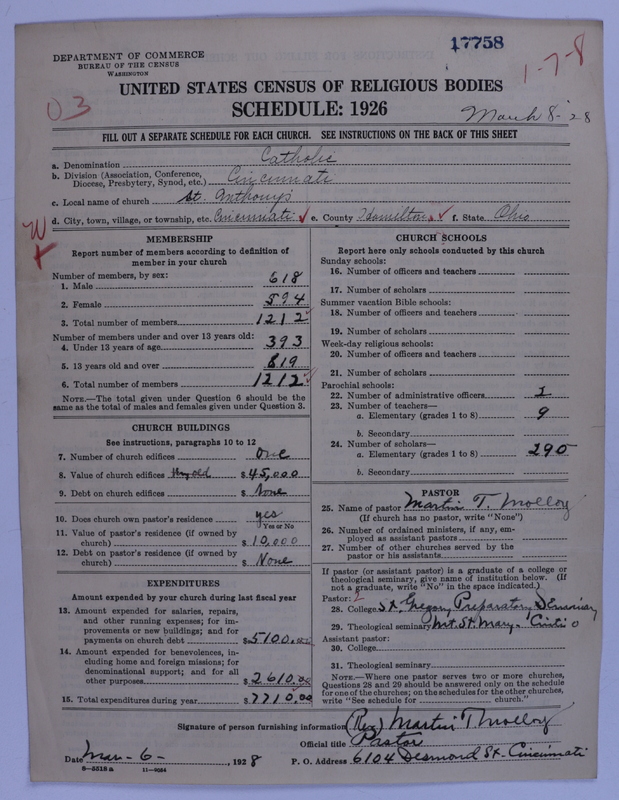 17758
DEPARTMENT OF COMMERCE
BUREAU OF THE CENSUS
WASHINGTON
1-7-8
UNITED STATES CENSUS OF RELIGIOUS BODIES
03
SCHEDULE: 1926
March 8-28
FILL OUT A SEPARATE SCHEDULE FOR EACH CHURCH. SEE INSTRUCTIONS ON THE BACK OF THIS SHEET
a. Denomination Catholic
b. Division (Association, Conference, Diocese, Presbytery, Synod, etc.) Cincinnati
c. Local name of church St. Anthony's
d. City, town, village, or township, etc. Cincinnati e. County Hamilton f. State Ohio
MEMBERSHIP
Report number of members according to definition of
member in your church
Number of members, by sex:
1. Male 618
2. Female 594
3. Total number of members 1212
Number of members under and over 13 years old:
4. Under 13 years of age 393
5. 13 years old and over 819
6. Total number of members 1212
NOTE.—The total given under Question 6 should be the
same as the total of males and females given under Question 3.
CHURCH BUILDINGS
See instructions, paragraphs 10 to 12
7. Number of church edifices one
8. Value of church edifices $45,000
9. Debt on church edifices $ None
10. Does church own pastor's residence yes
Yes or No
11. Value of pastor's residence (if owned by
church) $ 10,000
12. Debt on pastor's residence (if owned by
church) $ None
EXPENDITURES
Amount expended by your church during last fiscal year
13. Amount expended for salaries, repairs,
and other running expenses; for im-
provements or new buildings; and for
payments on church debt $5100.00
14. Amount expended for benevolences, in-
cluding home and foreign missions; for
denominational support; and for all
other purposes $2610.00
15. Total expenditures during year $7710.00
CHURCH SCHOOLS
Report here only schools conducted by this church
Sunday schools:
16. Number of officers and teachers
17. Number of scholars
Summer vacation Bible schools:
18. Number of officers and teachers
19. Number of scholars
Week-day religious schools:
20. Number of officers and teachers
21. Number of scholars
Parochial schools:
22. Number of administrative officers 1
23. Number of teachers—
a. Elementary (grades 1 to 8) 9
b. Secondary
24. Number of scholars—
a. Elementary (grades 1 to 8) 290
b. Secondary
PASTOR
25. Name of pastor Martin T. Molloy
(If church has no pastor, write "None")
26. Number of ordained ministers, if any, em-
ployed as assistant pastors
27. Number of other churches served by the
pastor or his assistants
If pastor (or assistant pastor) is a graduate of a college or
theological seminary, give name of institution below. (If
not a graduate, write "No" in the space indicated.)
Pastor:
28. College St. Gregory Preparatory Seminary
29. Theological seminary Mt. St. Mary. Cinti O
Assistant pastor:
30. College
31. Theological seminary
NOTE.—Where one pastor serves two or more churches,
Questions 28 and 29 should be answered only on the schedule
for one of the churches; on the schedules for the other churches,
write "See schedule for church."
Signature of person furnishing information (Rev) Martin T Molloy
Official title Pastor
Date Mar-6-, 1928 P. O. Address 6104 Desmond St. Cincinnati
8-5518a 11-9054